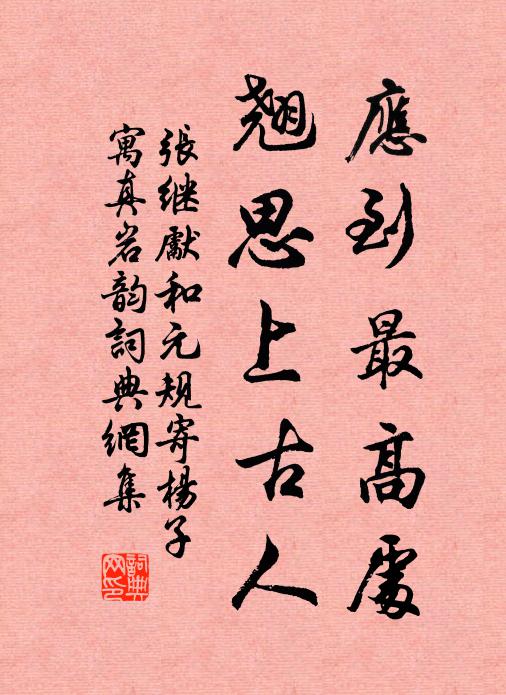 應到最高處
翹思上古人
張继獻和元規寄楊子
寓真岩韵詞典網集
詞典網印